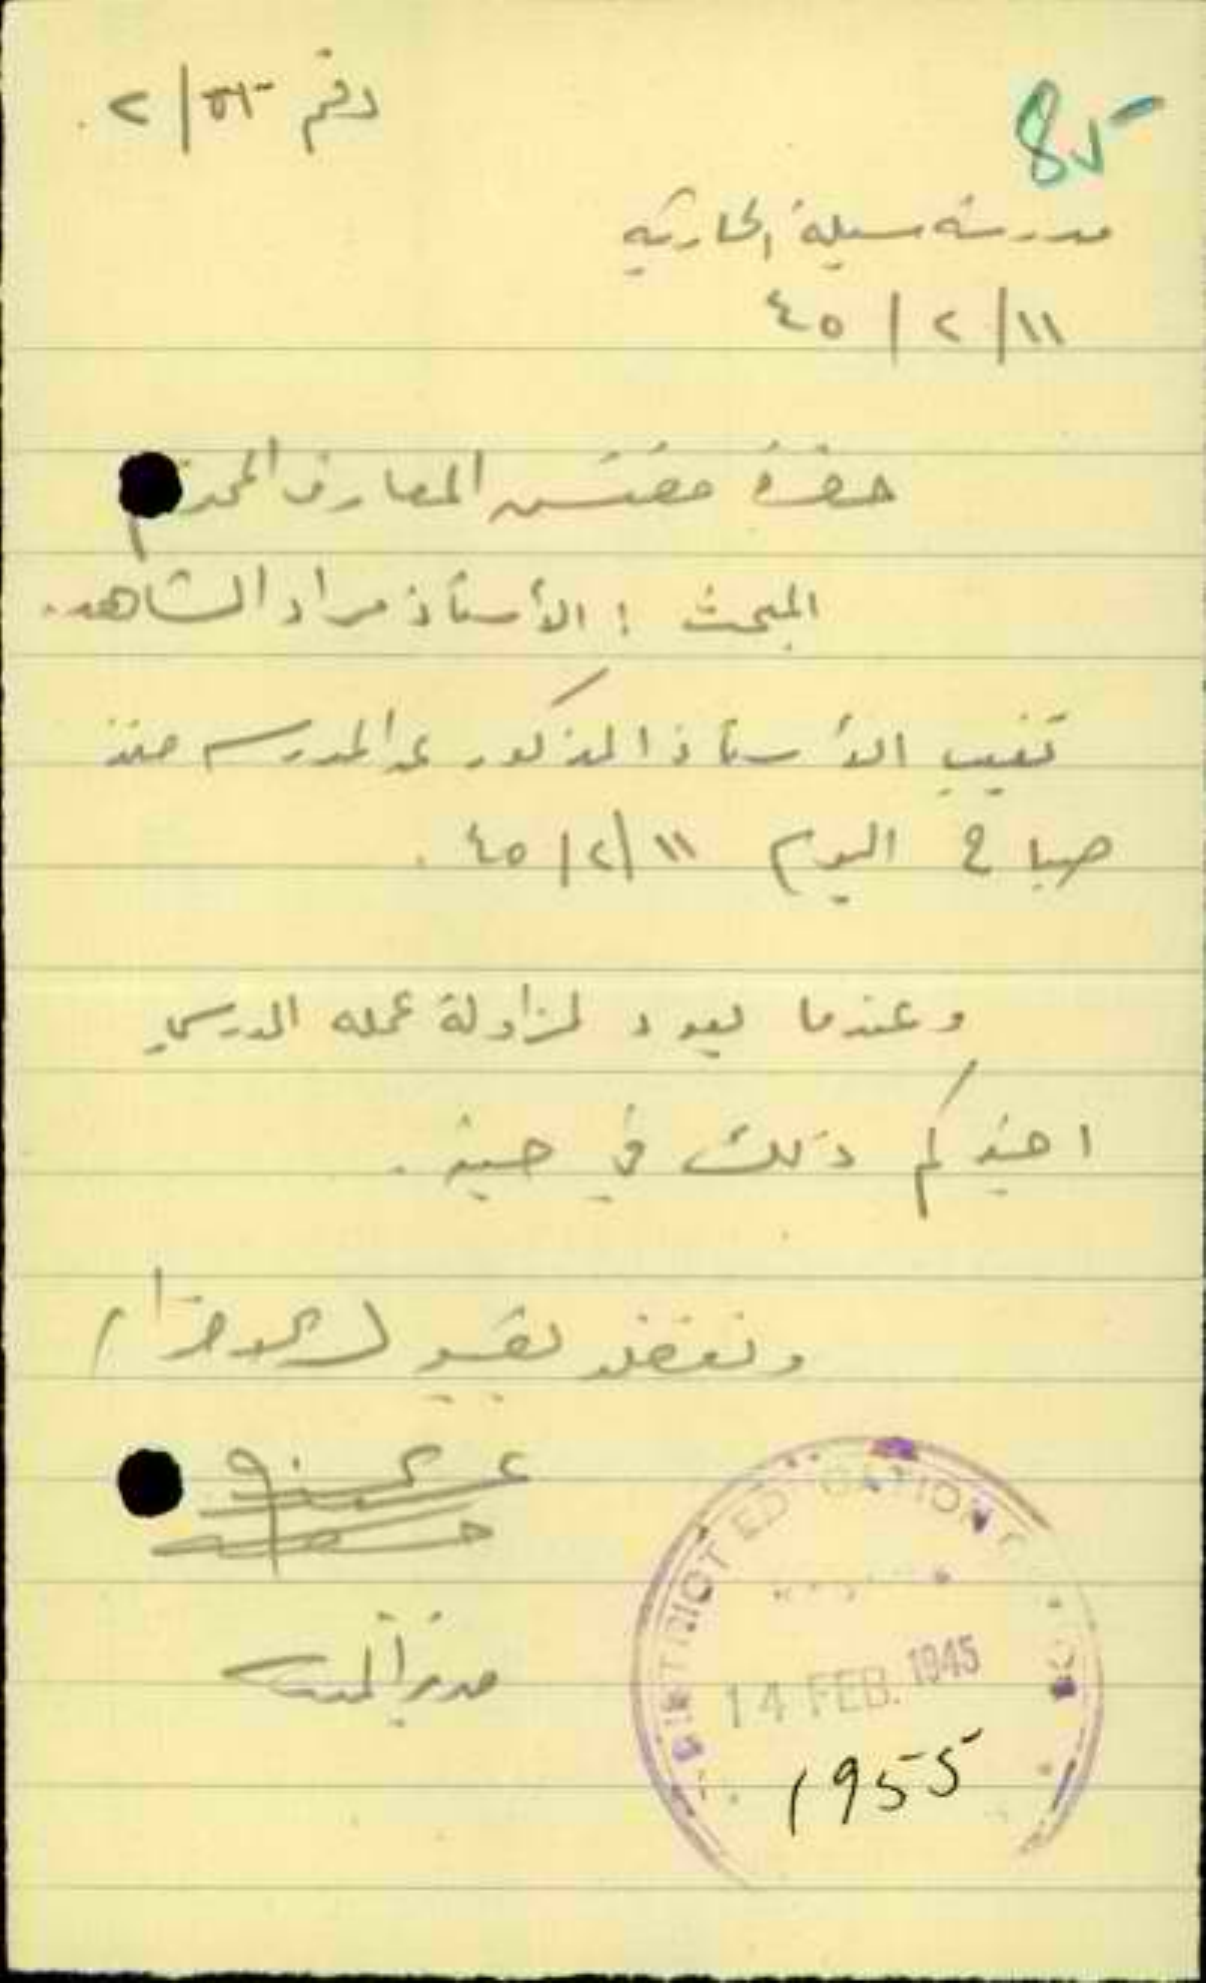 85
رقم
مدرسة سيلة الحارثية
١١/٢/٤٥
حضرة مفتش المعارف المحترم
المبحث : الأستاذ مراد الشاهد.
تغيب الأستاذ المذكور عن المدرسة منذ
صباح اليوم ١١/٢/٤٥ .
وعندما يعود لمزاولة عمله المدرسي
اخبركم ذلك في حينه .
وتفضلوا بقبول الاحترام
مدير المدرسة
DISTRICT EDUCATION
14 FEB. 1945
1955